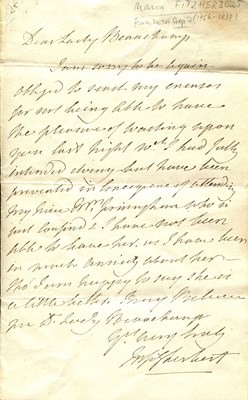 Maria FITZHERBERT
Dear Lady Beauchamp
I am sorry to be again
obliged to send my excuses
for not being able to have
the pleasure of waiting upon
you last night wch I had fully
intended doing but have been
prevented in consequence of attending
my niece Mrs Jerningham who is
just confined & I have not been
able to leave her, as I have been
in much anxiety about her —
tho I am happy to say she is
a little better. I beg Believe
me Dr Lady Beauchamp
Yrs very truly
M Fitzherbert